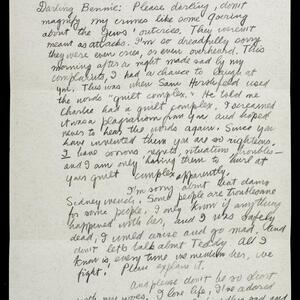 Darling Bennie: Please darling, don't
magnify my crimes like some Goering
about the Jews' outcries. They weren't
meant as attacks. I'm so dreadfully sorry
they were even cross, or even overheard. This
morning after a night made sad by my
complaints, I had a chance to laugh at
you. This was when Sam Hershfeld used
the words "guilt complex." He told me
Charlie had a guilt complex. I screamed
it was a plagiarism from you and hoped
never to hear the words again. Since you
have invented them you are so righteous.
I have serious regrets, situation troubles—
and I am only having them to hurl at
your guilt complex apparently.
I'm sorry about that damn
Sidney wench. Some people are troublesome
for some people. I only know if anything
happened with her, and I was safely
dead, I would arise and go mad. And
don't let's talk about Teddy. All I
know is, every time we mention her, we
fight! Please explain it.
And please don't be so short
with my woes. I love life, I've adored